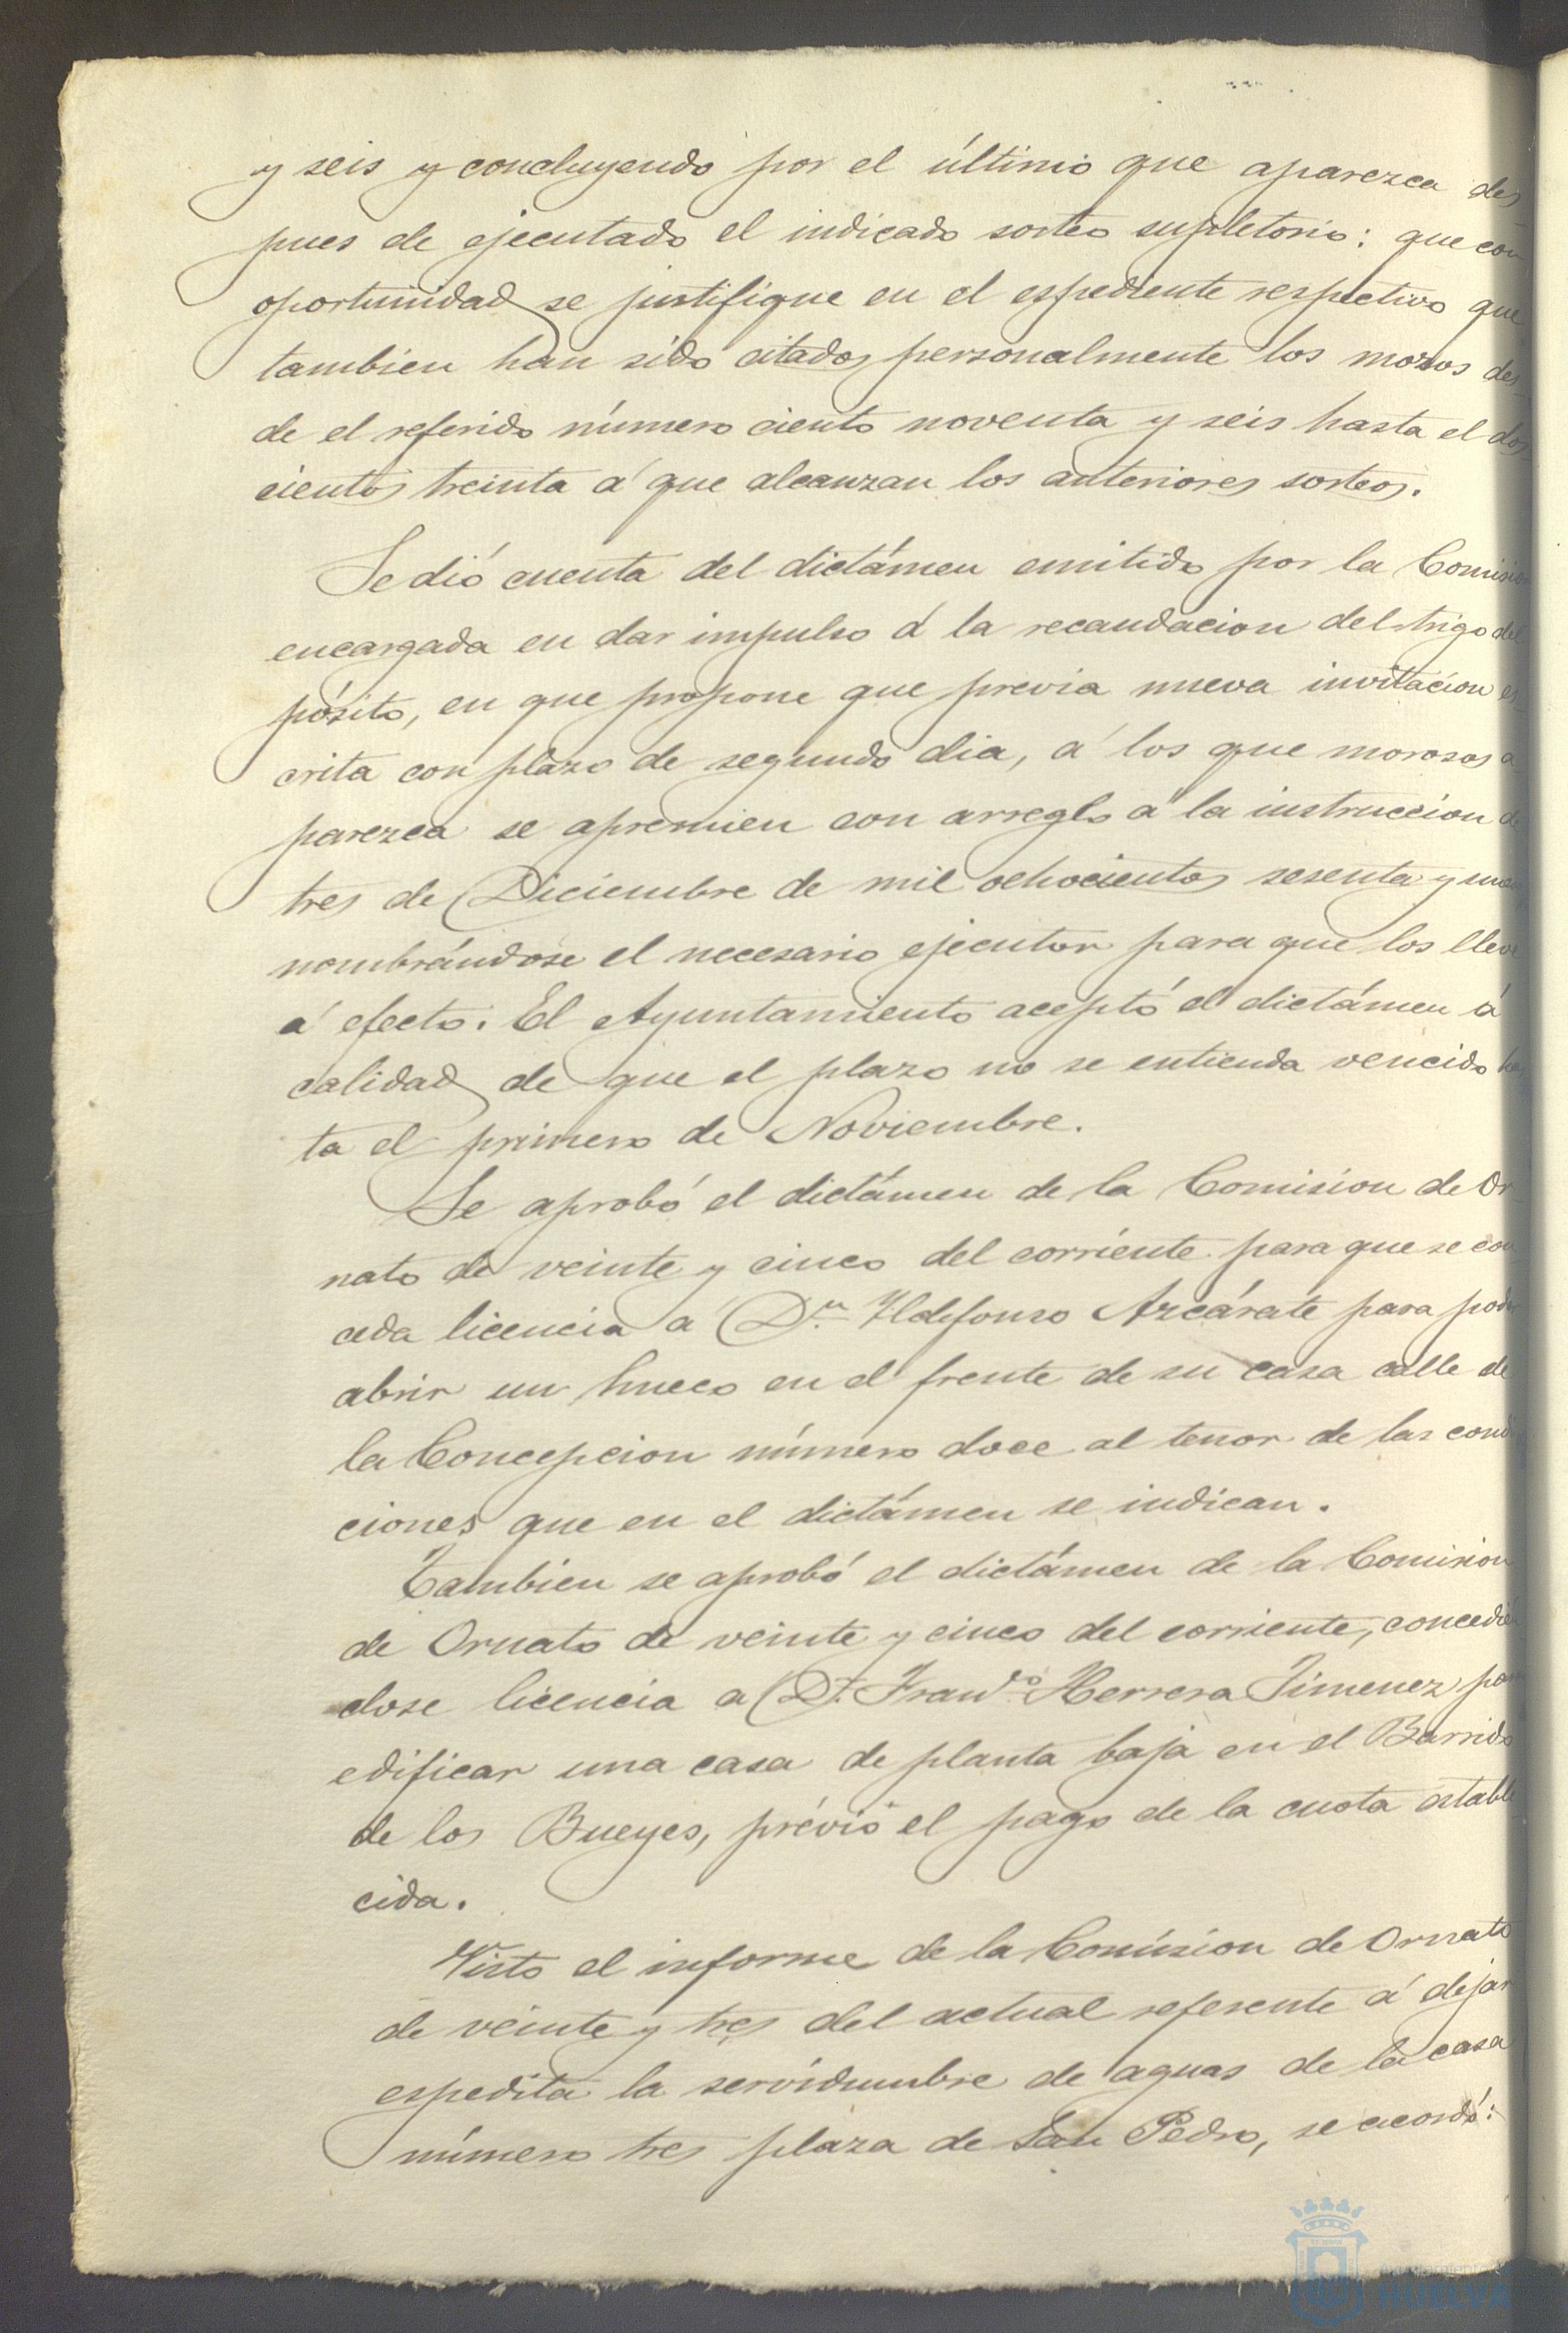 y seis y concluyendo por el último que aparezca des
pues de ejecutado el indicado sorteo supletorio: que con
oportunidad se justifique en el espediente respectivo que
tambien han sido citados personalmente los mozos des
de el referido número ciento noventa y seis hasta el dos
cientos treinta á que alcanzan los anteriores sorteos.
Se dió cuenta del dictámen emitido por la Comision
encargada en dar impulso á la recaudacion del trigo del
pósito, en que propone que previa nueva invitacion es
crita con plazo de segundo dia, á los que morosos a
parezca se apremien con arreglo á la instruccion de
tres de Diciembre de mil ochocientos sesenta y nueve
nombrándose el necesario ejecutor para que los lleve
á efecto. El Ayuntamiento aceptó el dictámen á
calidad de que el plazo no se entienda vencido has
ta el primero de Noviembre.
Se aprobó el dictámen de la Comision de Or
nato de veinte y cinco del corriente para que se con
ceda licencia á Dn. Ildefonso Azcárate para poder
abrir un hueco en el frente de su casa calle de
la Concepcion número doce al tenor de las condi
ciones que en el dictámen se indican.
Tambien se aprobó el dictámen de la Comision
de Ornato de veinte y cinco del corriente, concedién
dose licencia a D. Franco. Herrera Jimenez para
edificar una casa de planta baja en el Barrido
de los Bueyes, prévio el pago de la cuota estable
cida.
Visto el informe de la Comision de Ornato
de veinte y tres del actual referente á dejar
espedita la servidumbre de aguas de la casa
número tres plaza de San Pedro, se acordó:
Ayuntamiento de
HUELVA